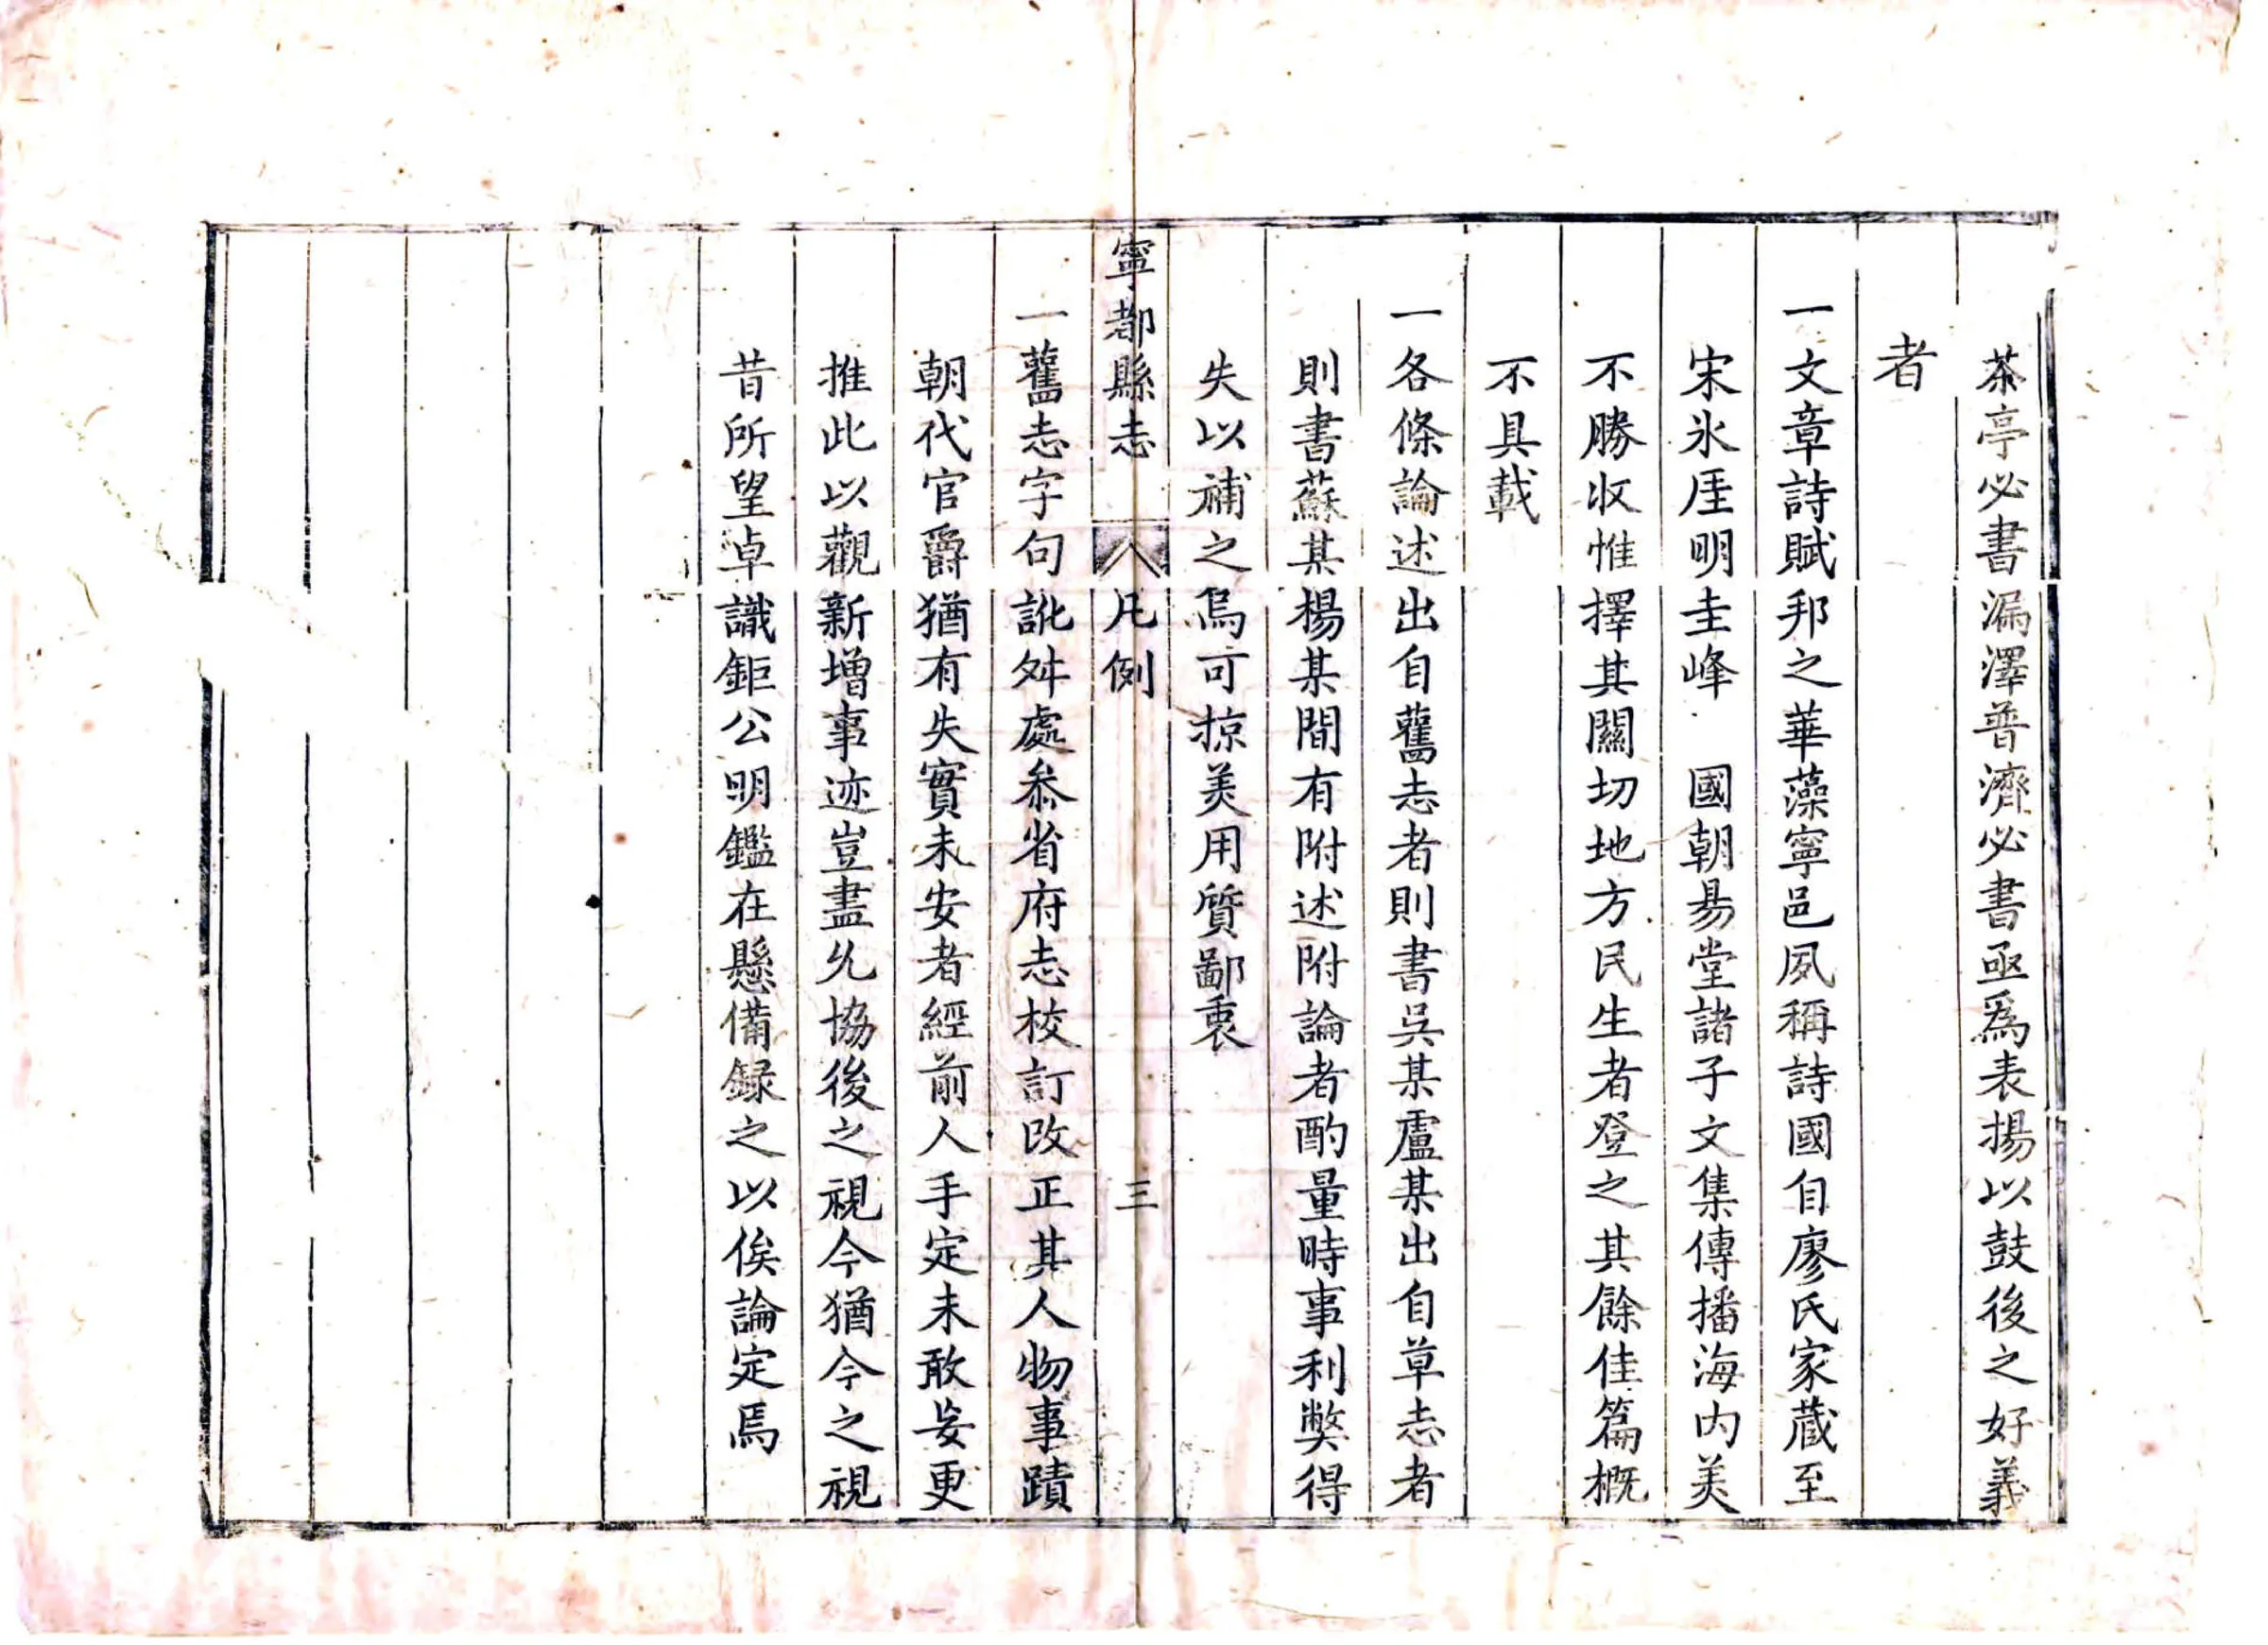 茶亭必書漏澤普濟必書亟爲表揚以鼓後之好義
者
一文章詩賦邦之華藻寧邑夙稱詩國自廖氏家蔵至
宋氷厓明圭峰　國朝易堂諸子文集傳播海内美
不勝收惟擇其關切地方民生者登之其餘佳篇概
不具載
一各條論述出自舊志者則書吳某盧某出自草志者
則書蘇某楊某間有附述附論者酌量時事利弊得
失以補之烏可掠美用質鄙衷
寧都縣志　凡例　三
一舊志字句訛舛處叅省府志校訂改正其人物事蹟
朝代官爵猶有失實未安者經前人手定未敢妄更
推此以觀新增事迹豈盡允協後之視今猶今之視
昔所望卓識鉅公明鑑在懸備録之以俟論定焉